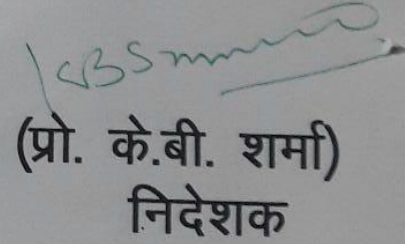 KBSmmm
(प्रो. के.बी. शर्मा)
निदेशक